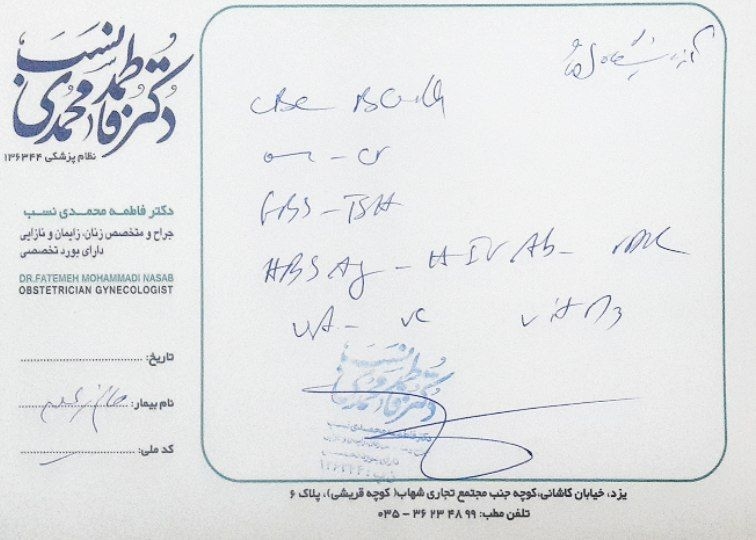 دکتر فاطمه محمدی نسب
نظام پزشکی ۱۳۶۳۴۴
دکتر فاطمه محمدی نسب
جراح و متخصص زنان، زایمان و نازایی
دارای بورد تخصصی
DR.FATEMEH MOHAMMADI NASAB
OBSTETRICIAN GYNECOLOGIST
تاریخ:
نام بیمار:
کد ملی:
آزمایشگاه
CBC BG
- Cr
FBS - TSH
HBSAg - HIV Ab - VDRL
UA - UC Vit D3
دکتر فاطمه محمدی نسب
دکتر فاطمه محمدی نسب
یزد، خیابان کاشانی،کوچه جنب مجتمع تجاری شهاب( کوچه قریشی)، پلاک ۶
تلفن مطب: ۹۹ ۴۸ ۲۳ ۳۶ - ۰۳۵